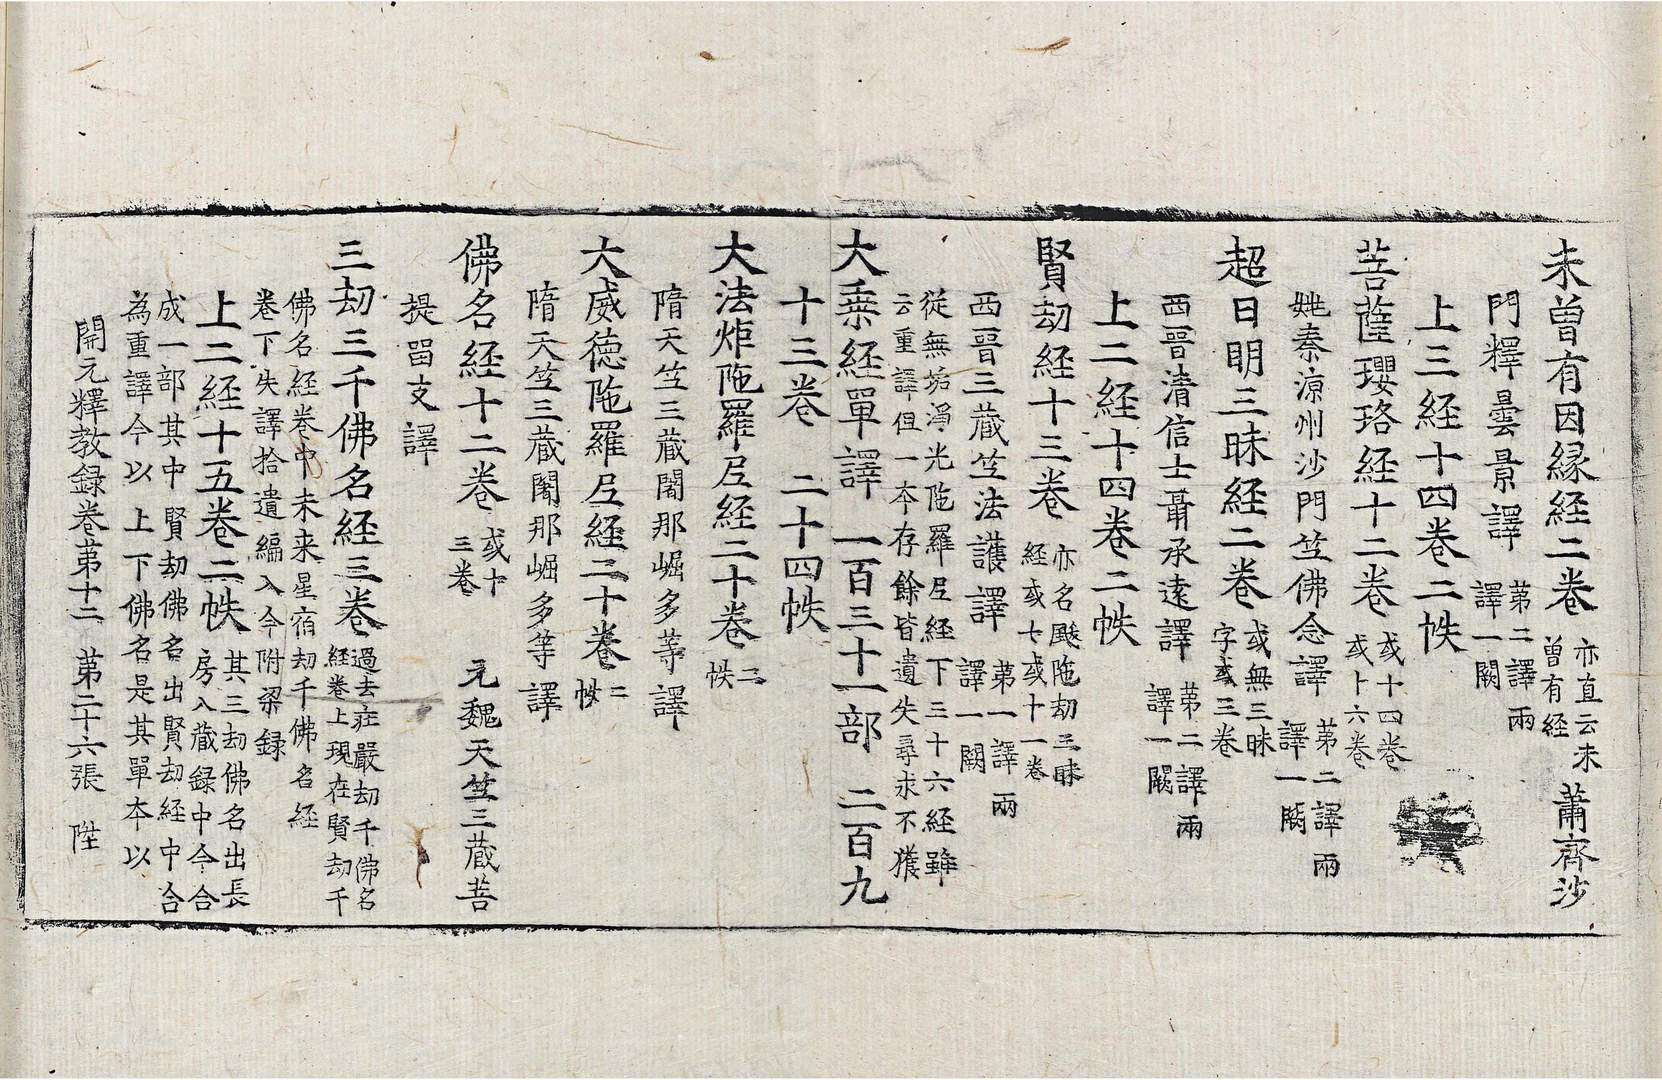 未曽有因縁経二巻 亦直云未曽有経 蕭齊沙
門釋曇景譯 第二譯兩譯一闕
上三経十四巻二帙
菩薩瓔珞経十二巻 或十四巻或十六巻
姚秦涼州沙門竺佛念譯 第二譯兩譯一闕
超日明三昧経二巻 或無三昧字或三巻
西晉清信士聶承遠譯 第二譯兩譯一闕
上二経十四巻二帙
賢劫経十三巻 亦名颰陁劫三昧経或七或十一巻
西晉三蔵竺法護譯 第一譯兩譯一闕
從無垢淨光陁羅尼経下三十六経雖
云重譯但一本存餘皆遺失尋求不獲
大乗経單譯 一百三十一部 二百九
十三巻 二十四帙
大法炬陁羅尼経二十巻 二帙
隋天竺三蔵闍那崛多等譯
大威徳陁羅尼経二十巻 二帙
隋天竺三蔵闍那崛多等譯
佛名経十二巻 或十三巻 元魏天竺三蔵菩
提畱支譯
三劫三千佛名経三巻 過去荘嚴劫千佛名経巻上現在賢劫千
佛名経巻中未来星宿劫千佛名経
巻下失譯拾遺編入今附梁録
上二経十五巻二帙 其三劫佛名出長房入蔵録中今合
成一部其中賢劫佛名出賢劫経中合
為重譯今以上下佛名是其單本以
開元釋教録巻第十二 第二十六張 陞